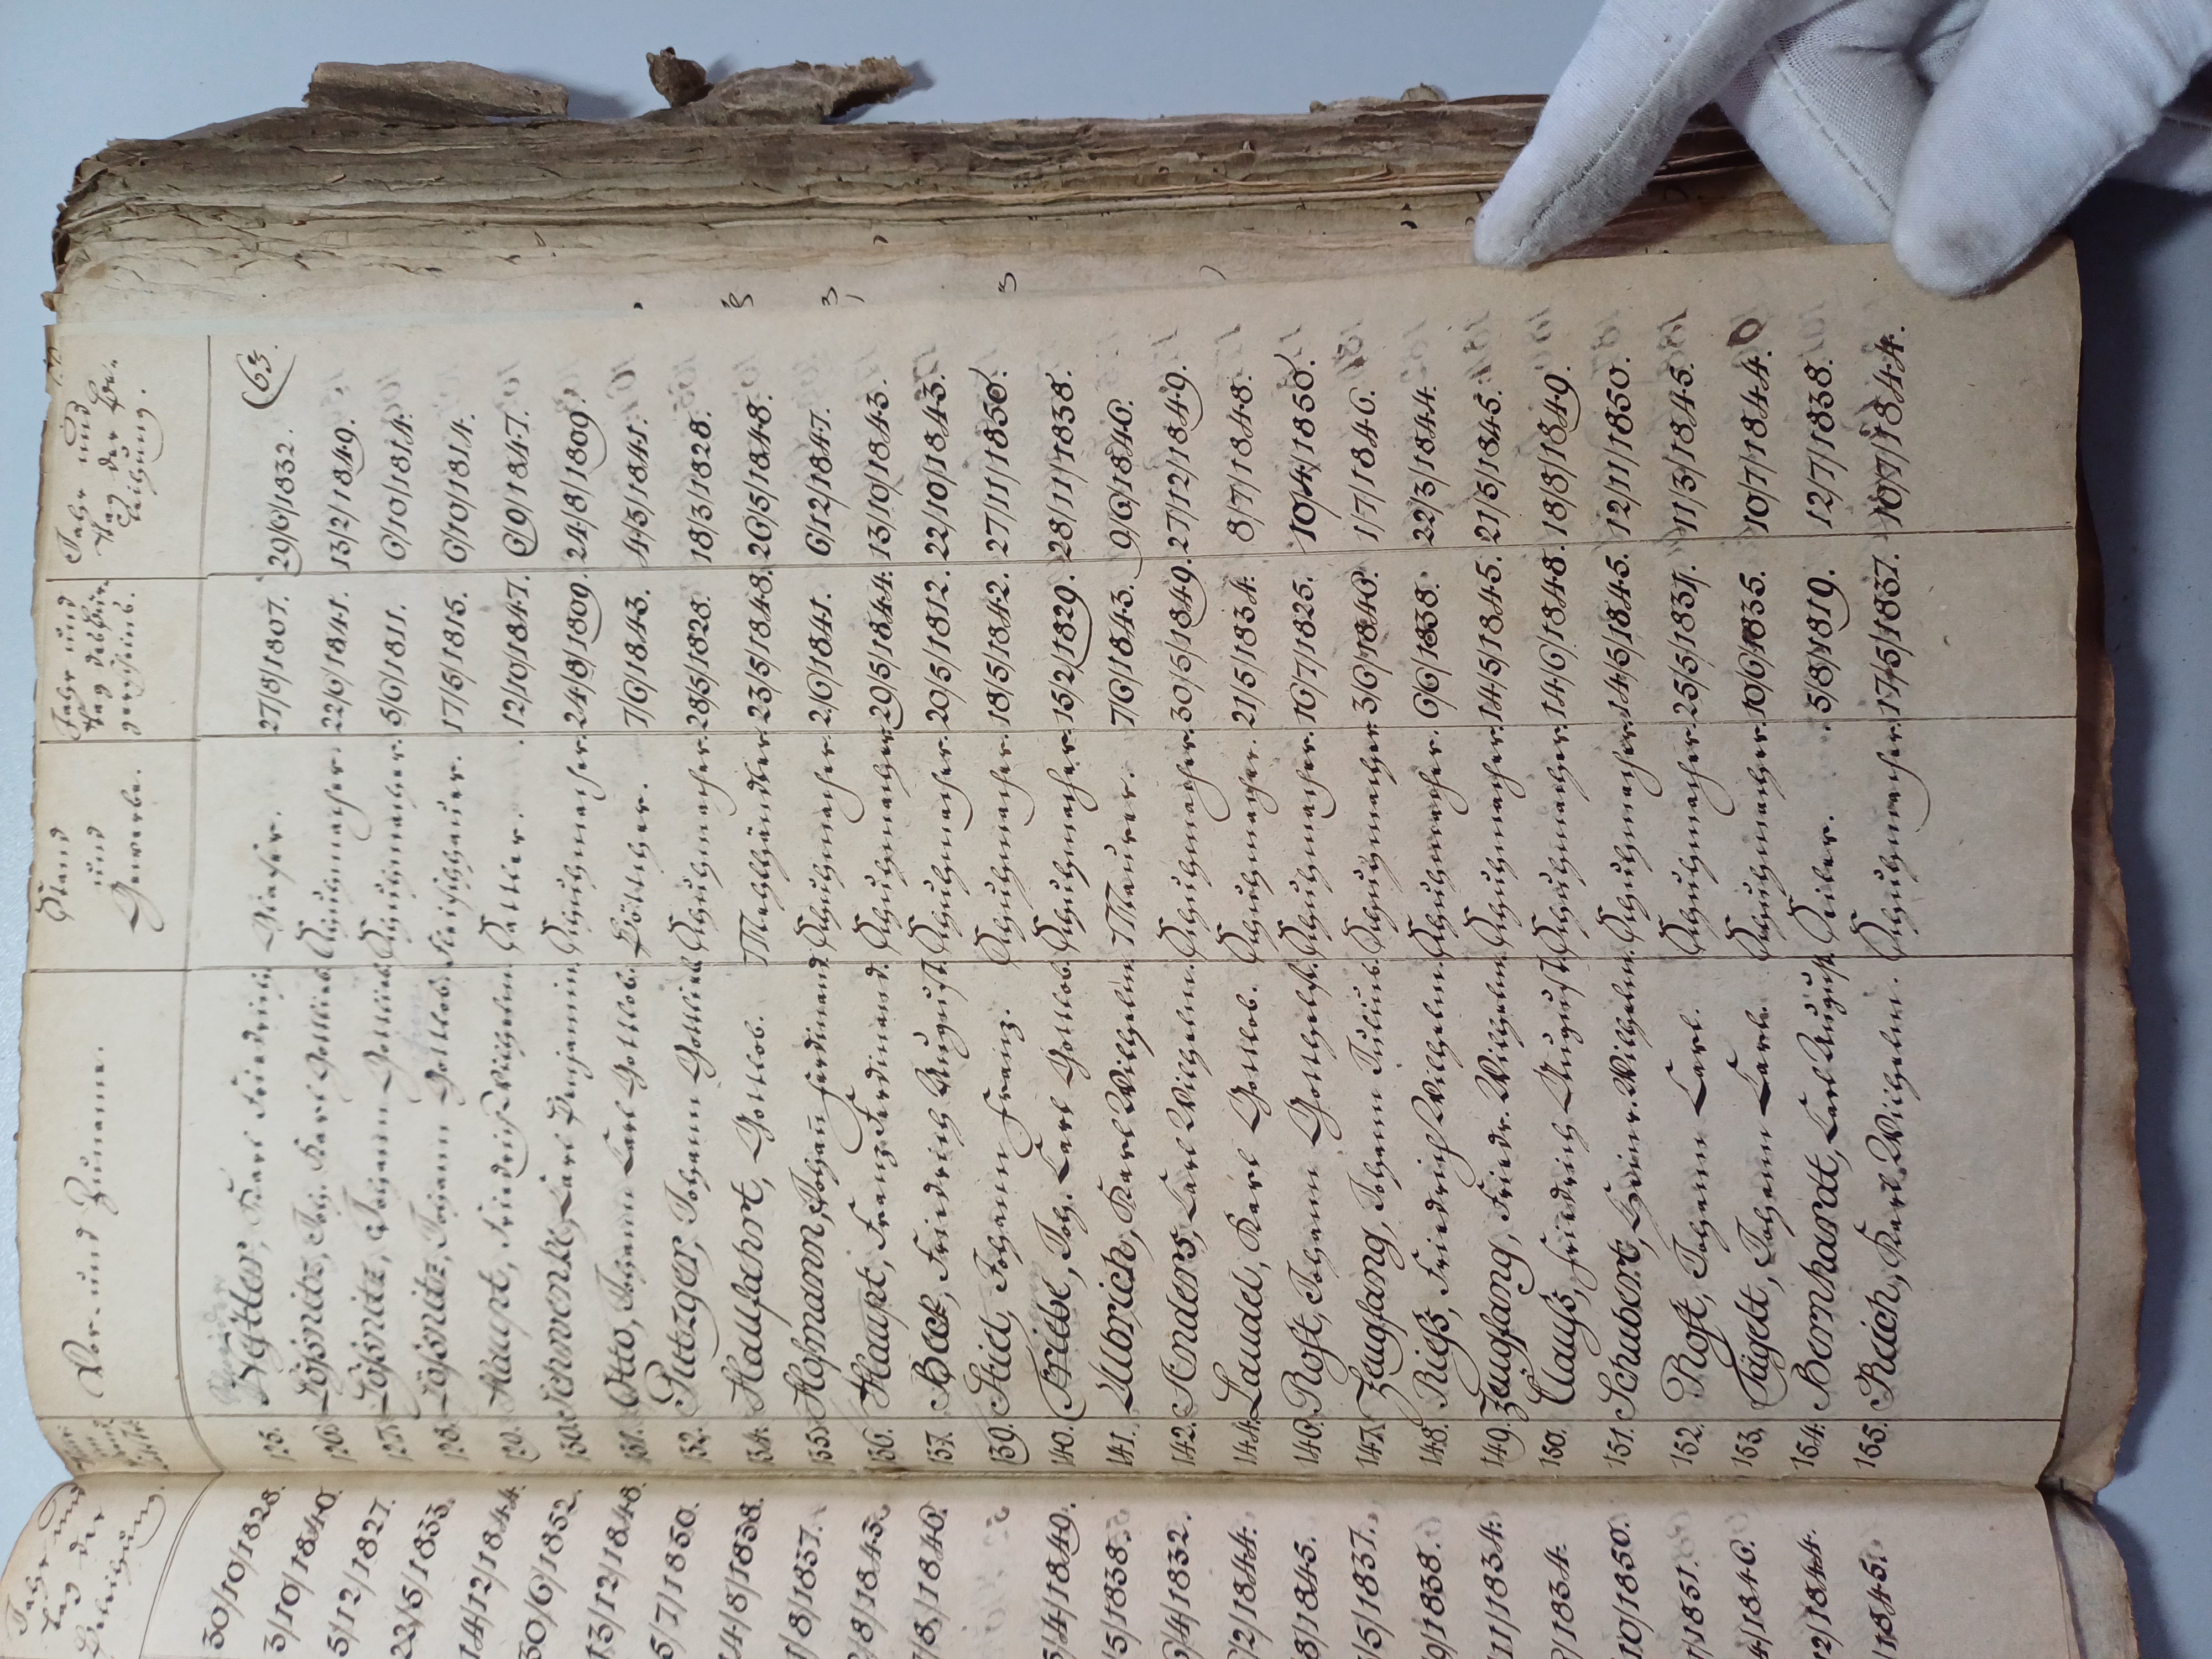 Vor- und Zuname.
Stand und Gewerbe.
Jahr und Tag des Bürgerscheins.
Jahr und Tag der Beleihung.
63.
125. Karl Friedrich Glaser. 27/8/1807. 29/6/1832.
126. Lößnitz, Joh. Karl Gottlieb Schuhmacher. 22/6/1841. 13/2/1849.
127. Lößnitz, Johann Gottlieb Schuhmacher. 5/6/1811. 6/10/1814.
128. Lößnitz, Johann Gottlob. Fleischhauer. 17/5/1815. 6/10/1814.
129. Haupt, Friedrich Wilhelm Sattler. 12/10/1847. 6/9/1847.
130. Schwenke, Carl Benjamin Schuhmacher. 24/8/1809. 24/8/1809.
131. Otto, Johann Carl Gottlob. Böttcher. 7/6/1843. 4/5/1841.
132. Puttzger, Johann Gottlieb Schuhmacher. 28/5/1828. 18/3/1828.
134. Haulfahrt, Gottlob. Mehlhändler 23/5/1848. 26/5/1848.
135. Hofmann, Johann Ferdinand Schuhmacher. 2/6/1841. 6/12/1847.
136. Haupt, Franz Ferdinand. Schuhmacher 29/5/1844. 13/10/1843.
137. Beck, Friedrich August Schuhmacher. 20/5/1812. 22/10/1843.
139. Johann Franz. Schuhmacher. 18/5/1842. 27/11/1850.
140. Joh. Carl Gottlob. Schuhmacher. 15/2/1829. 28/11/1838.
141. Ulbrich, Karl Wilhelm Maurer. 7/6/1843. 9/6/1846.
142. Anders, Carl Wilhelm. Schuhmacher. 30/5/1849. 27/12/1849.
144. Laudel, Karl Gottlob. Schuhmacher. 21/5/1834. 8/7/1848.
146. Rost, Johann Gotthelf. Schuhmacher. 16/7/1825. 10/4/1850.
147. Zeugfang, Johann Julius. Schuhmacher 3/6/1846. 1/7/1846.
148. Rieß, Friedrich Wilhelm Schuhmacher. 6/6/1838. 22/3/1844.
149. Zeugfang, Friedr. Wilhelm Schuhmacher. 14/5/1845. 21/5/1845.
150. Clauß, Friedrich August Schuhmacher. 14/6/1848. 18/8/1849.
151. Schubert, Heinr. Wilhelm. Schuhmacher 14/5/1845. 12/11/1850.
152. Rost, Johann Carl. Schuhmacher. 25/5/1831. 11/3/1845.
153. Johann Carl. Schuhmacher. 10/6/1835. 10/7/1844.
154. Bernhardt, Carl August Seiler. 5/8/1819. 12/7/1838.
155. Reich, Karl Wilhelm. Schuhmacher. 17/5/1837. 10/7/1844.
Jahr und Tag der Beleihung.
30/10/1828.
3/10/1840.
5/12/1827.
22/5/1833.
14/12/1844.
30/6/1852.
13/12/1848.
5/7/1850.
14/8/1838.
1/8/1837.
8/1843.
/8/1846.
/4/1849.
/5/1838.
/4/1832.
/2/1844.
8/1845.
/5/1837.
9/1838.
11/1834.
/1834.
10/1850.
/1851.
4/1846.
12/1844.
/1845.